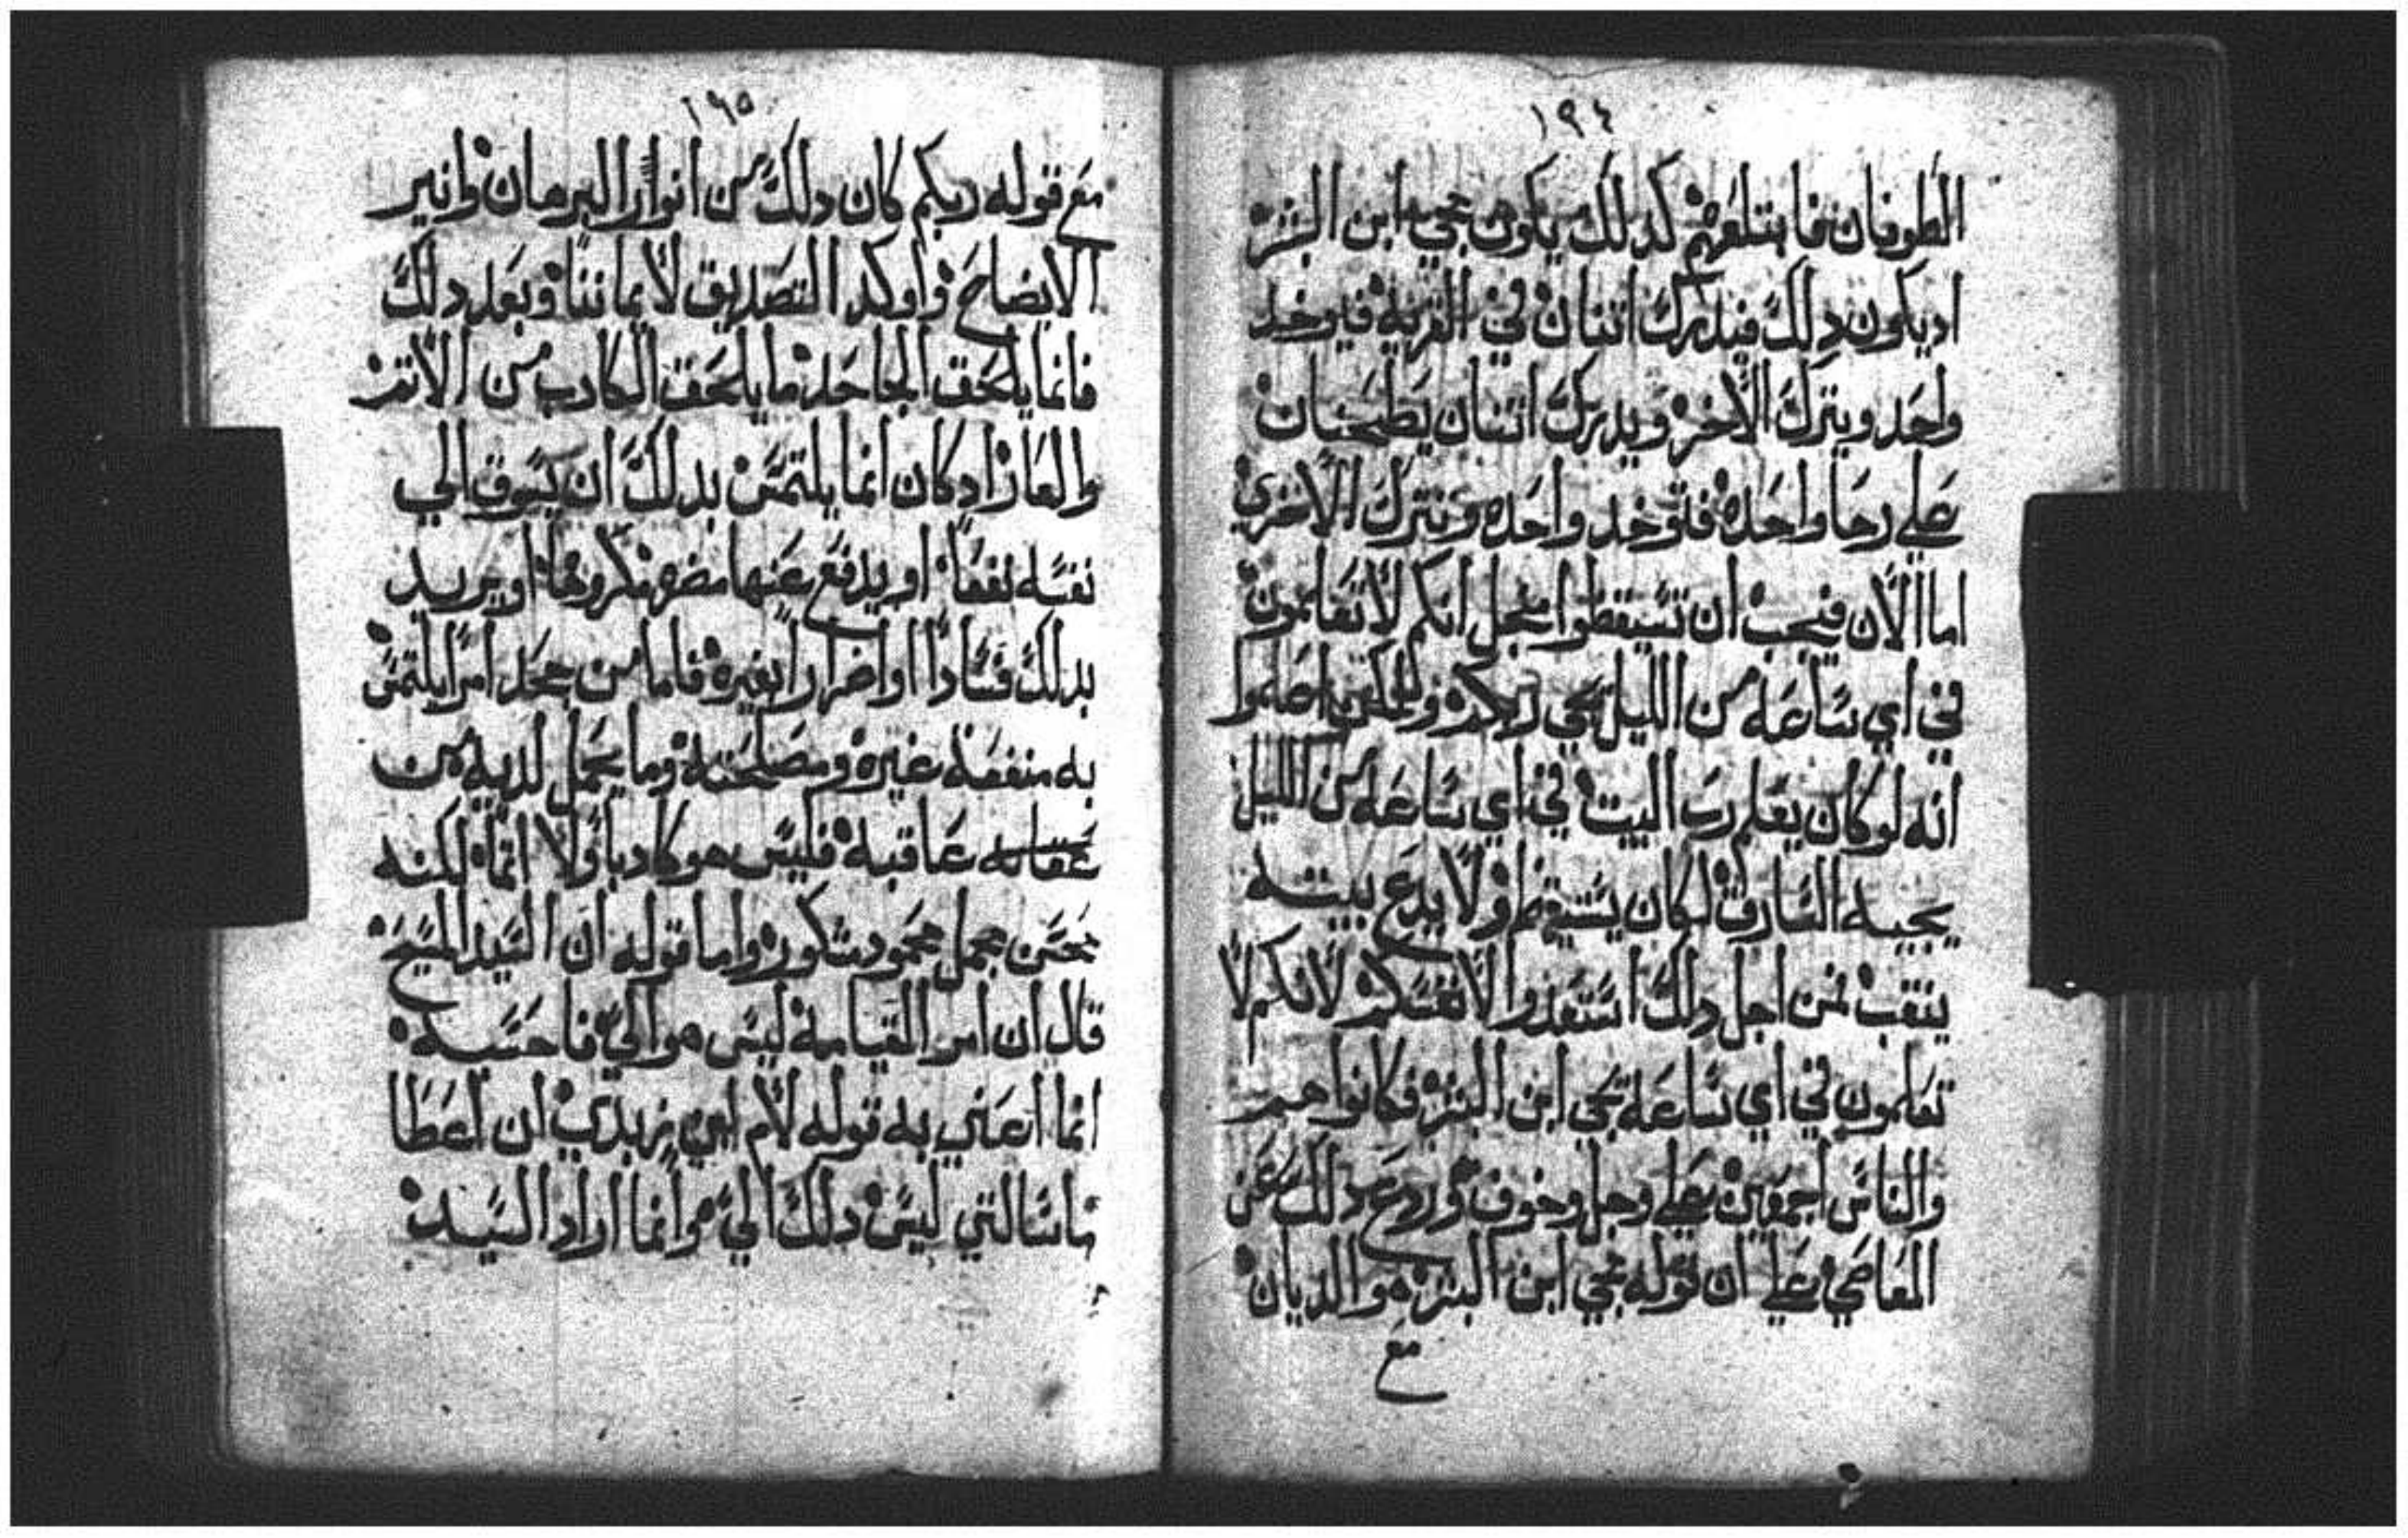 ١٩٤
الطوفان فابتلعهم كدلك يكون مجي ابن البشر
اديكون دلك فيدرك اتنان في القريه فيوخد
واحد ويترك الاخر ويدرك اتنان يطحنان
علي رحا واحده فتوخد واحده وتترك الاخري
اما الان فيجب ان تستيقظوا منجل انكم لا تعلمون
في اي ساعه من الليل يجي ربكم واعلموا
انه لو كان يعلم رب البيت في اي ساعه من الليل
يجيه السارق لكان يستيقظ ولا يدع بيته
ينقب فمن اجل دلك استعدوا لانفسكم لانكم لا
تعلمون في اي ساعه يجي ابن البشر فكانوا هم
والناس اجمعين علي وجل وخوف وردع دلك عن
المعاصي علي ان قوله مجي ابن البشر هو الديان
مع
١٩٥
مع قوله ربكم كان دلك من انوار البرهان وانير
الايضاح واوكد التصديق لايماننا وبعد دلك
فانما يلحق الجاحد ما يلحق الكادب من الاتم
والعار اد كان انما يلتمس بدلك ان يسوق الي
نفسه نفعا او يدفع عنها مضره مكروها او يريد
بدلك فسادا او اضرارا بغيره فاما من جحد امرا يلتمس
به منفعة غيره ومصلحته وما يجمل لديه من
عاقبه فليس هو كادبا ولا اتما لكنه
محسن مجمل محمود مشكور واما قوله ان السيد المسيح
قال ان امر القيامه ليس هو الي فاحسبه
انما اعني به قوله لام ابني زبدي ان اعطا
ماسالتي ليس دلك الي وانما اراد السيد